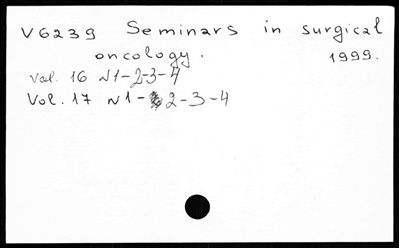 V6239 Seminars in surgical
oncology. 1999.
Vol. 16 N1-2-3-4
Vol. 17 N1-2-3-4